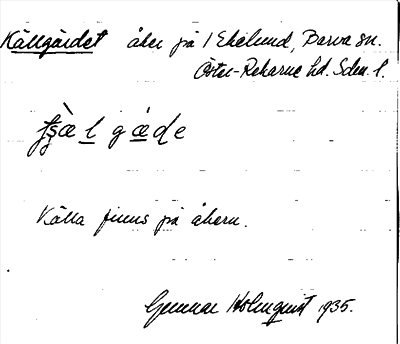 Källgärdet åker på 1 Ekelund, Barva sn.
Öster-Rekarne hd. Södm. l.
g æ d e
Källa finns på åkern.
Gunnar Holmquist 1935.